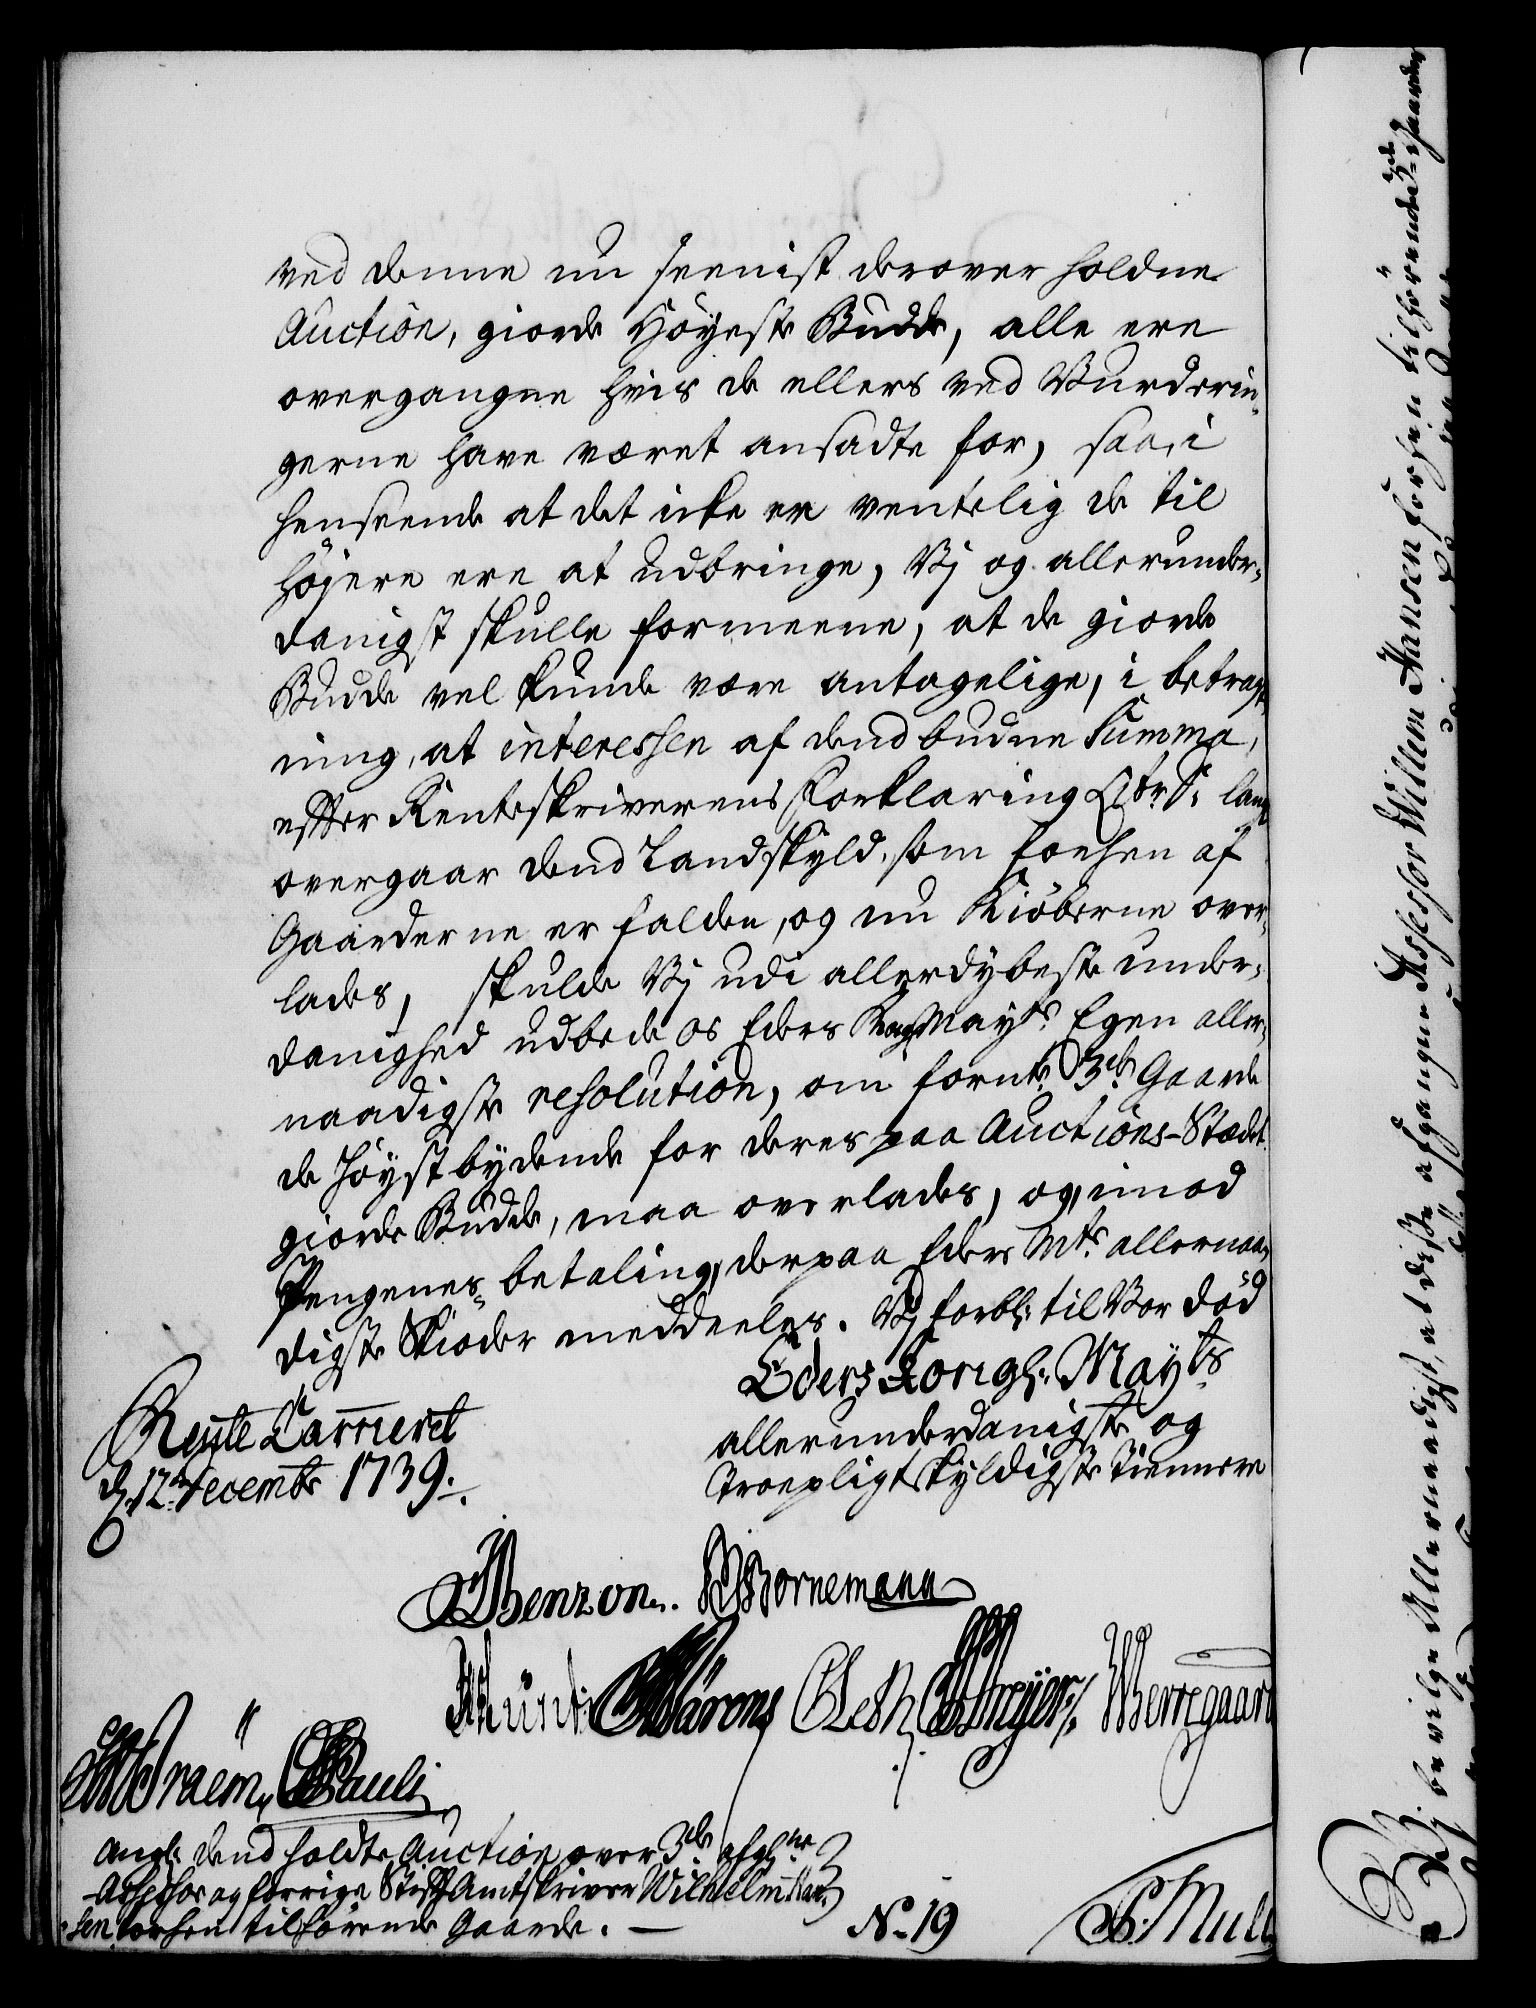 ved denne nu seenist derover holdne
Auction, giorde Höyeste Budde, alle ere
overgangne hvis de ellers ved Vurderin-
gerne have været ansadte for, saa i
henseende at det icke er ventelig de til
höjere ere at udbringe, Vj og allerunder-
danigst skulle formeene, at de giorde
Budde vel kunde være antagelige, i betragt-
ning, at interessen af dend budne Summa,
efter Renteskriverens Forklaring Litr: S: langt
overgaar dend Landskyld, som forhen af
Gaarderne er falden, og nu Kiöberne over-
lades, skulde Vj udi allerdybeste under-
danighed udbede os Eders Kongl. Mayts: Egen aller-
naadigste resolution, om fornte 3de Gaarde
de höystbydende for deres paa Auctions-Stædet
giorde Budde, maa overlades, og imod
Pengenes betaling, derpaa Eders Mts allernaa-
digste Skiöder meddeeles. Vj forbl: til Vor död
Eders Kongl: Mayts
allerunderdanigste og
Troepligtskyldigste Tiennere
Rente Cammeret
d. 12 Decembr 1739.
Benzon. Bornemann
Wærregaard
Fræm, Pauli
angl: dend holdte Auction over 3de afgl:ne
Assessor og forrige StiftAmtskriver Wilhelm Han-
sen forhen tilhörende Gaarde.
No 19
Vj bevilge Allernaadigst, at disse afgangne Assessor Willem Hansen forhen tilhörende 3de Gaarder